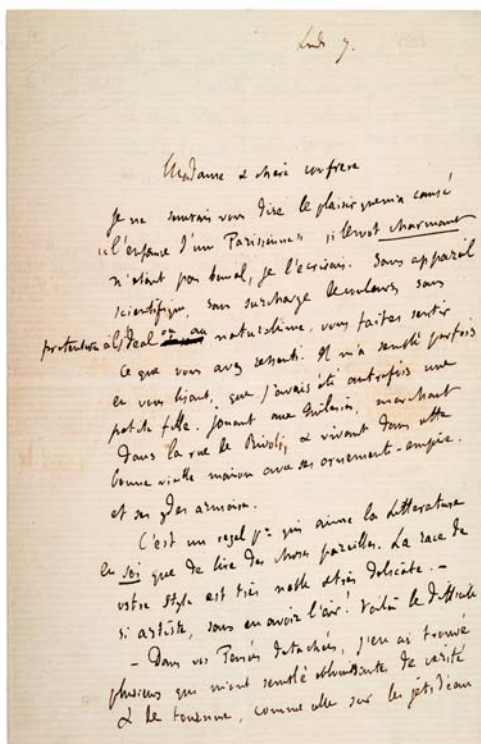 Lundi 7.
Madame & chère confrère
Je ne saurais vous dire le plaisir que m'a causé
« l'enfance d'une Parisienne » si le mot charmant
n'était pas banal, je l'écrirais. Sans appareil
scientifique, sans surcharge de couleurs, sans
prétention à l'Idéal ou au naturalisme, vous faites sentir
ce que vous avez ressenti. Il m'a semblé parfois
en vous lisant, que j'avais été autrefois une
petite fille. jouant aux Tuileries, marchant
dans la rue de Rivoli, & vivant dans cette
bonne vieille maison avec ses ornements-empire.
et ses gdes armoires.
C'est un régal pr qui aime la Littérature
en soi que de lire des choses pareilles. La race de
votre style est très noble & très délicate. –
si artiste, sans en avoir l'air! Voilà le difficile
– Dans vos Pensées détachées, j'en ai trouvé
plusieurs qui m'ont semblé éblouissantes de vérité
& de tournure, comme celle sur les jets d'eau